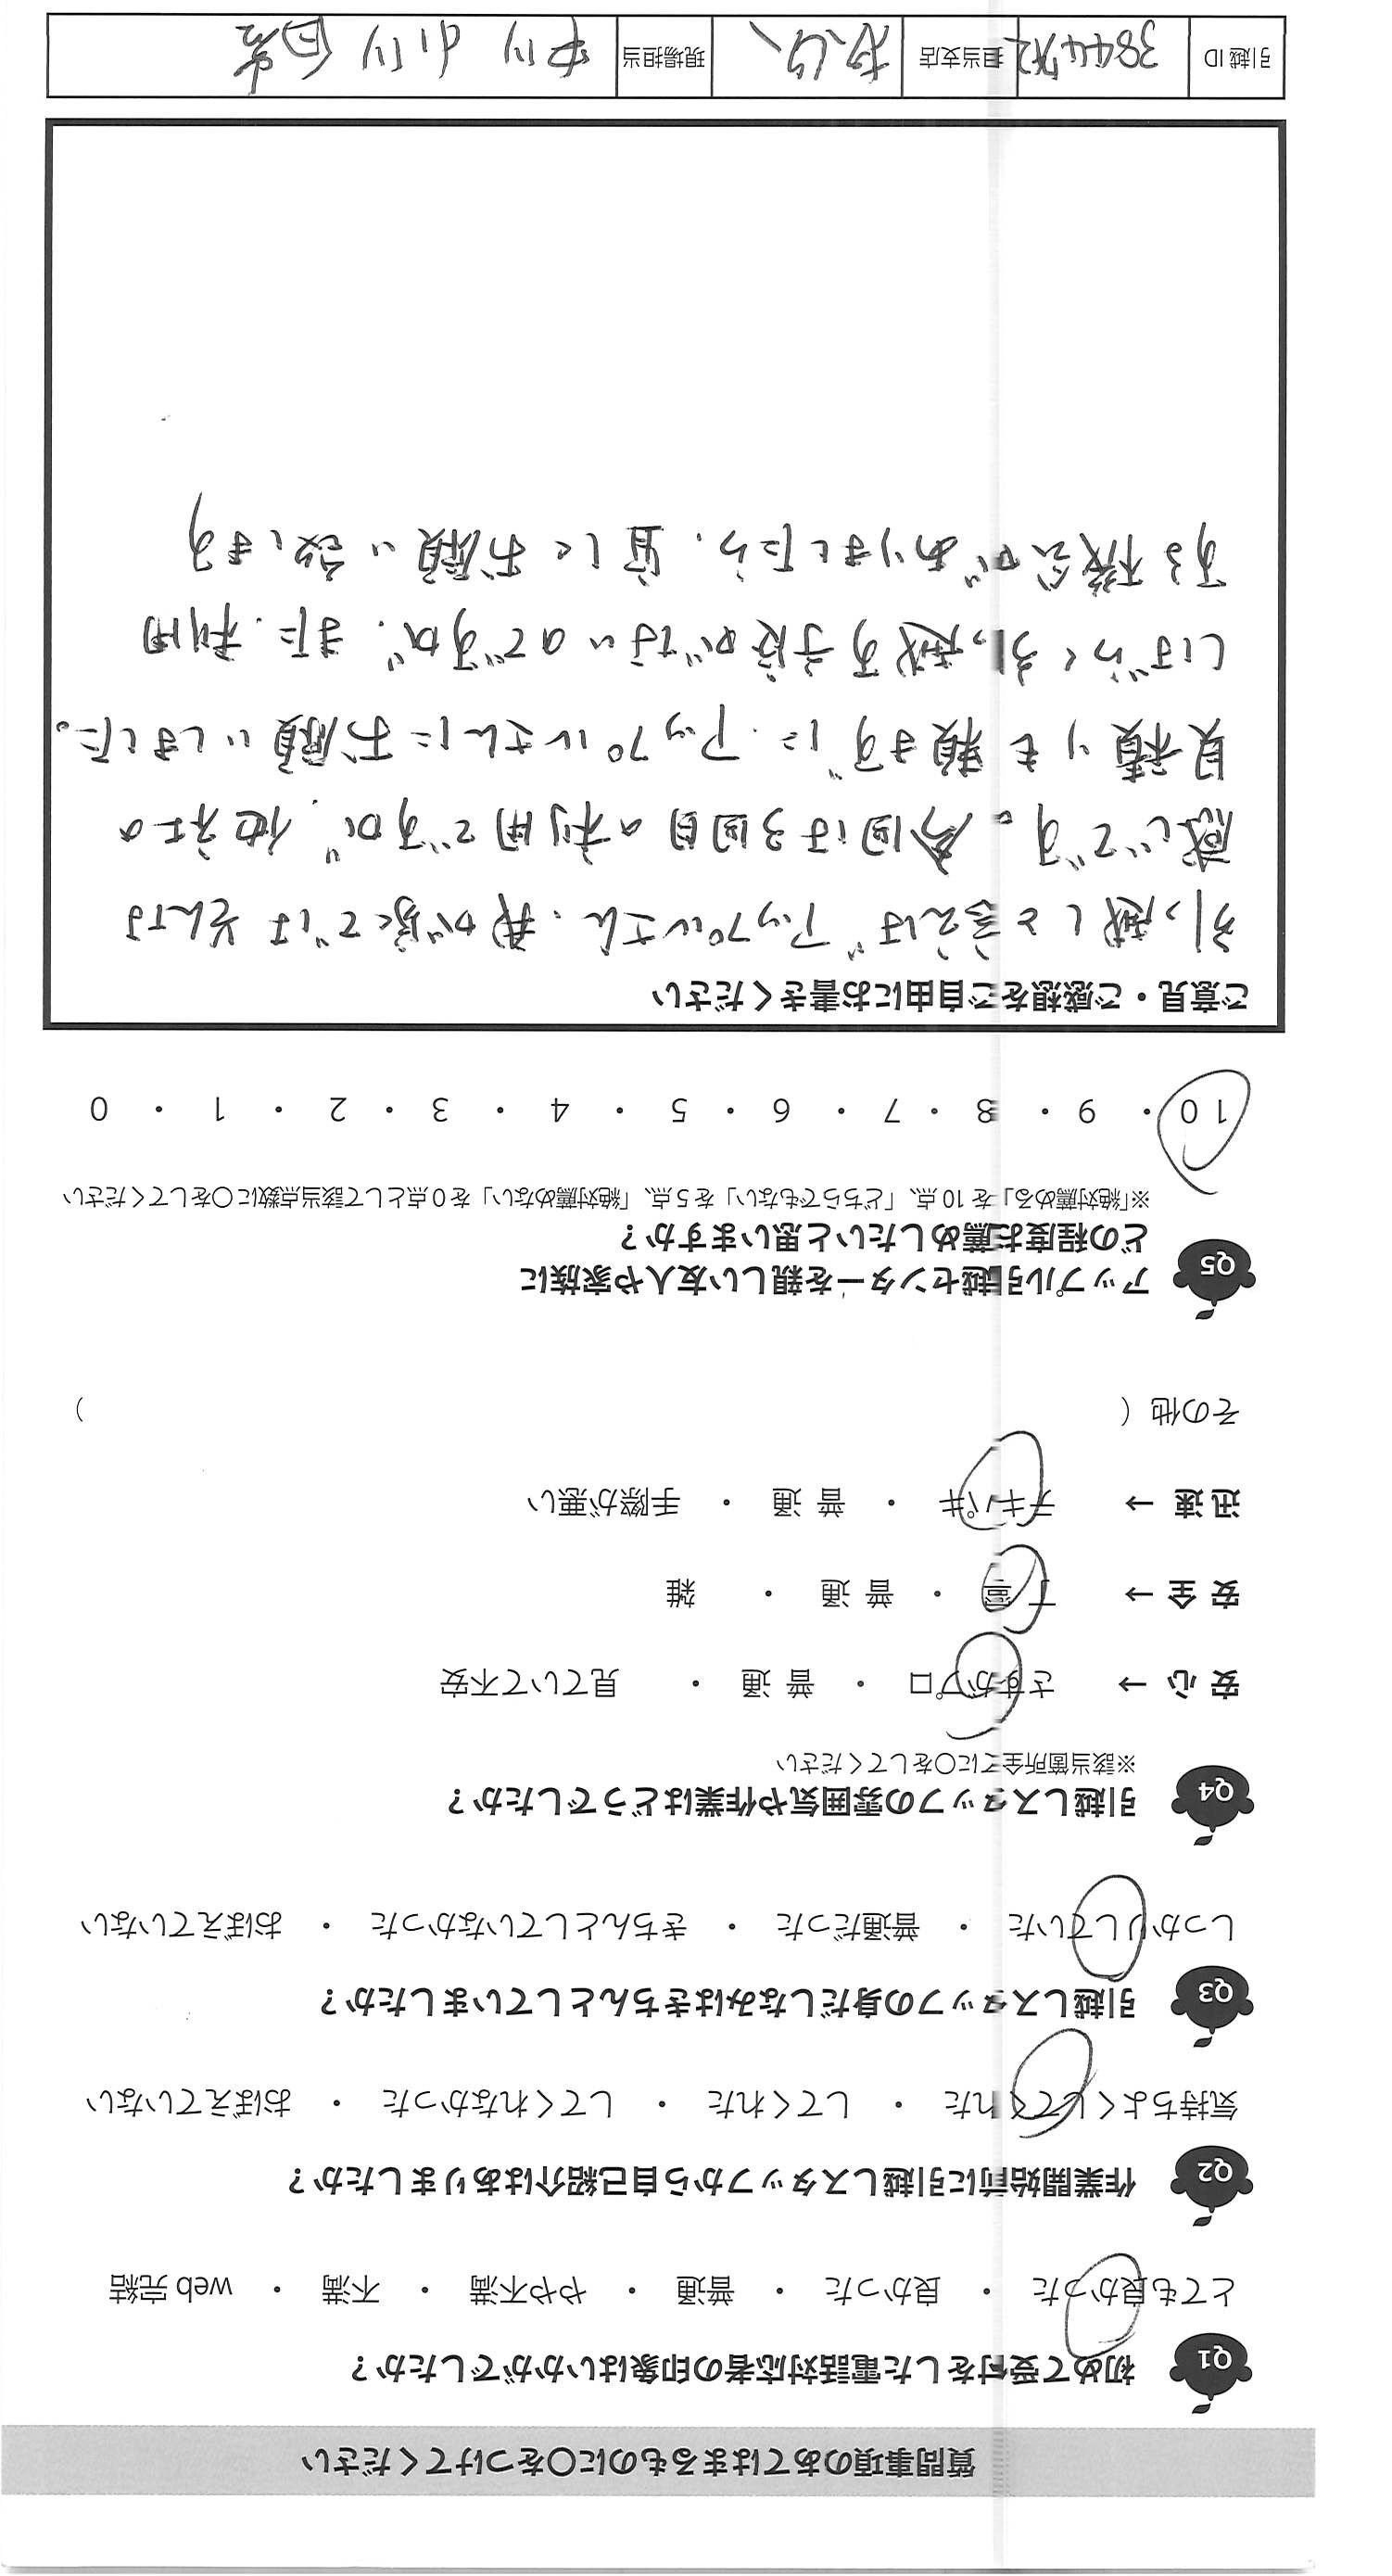 質問事項のあてはまるものに〇をつけてください
Q1 初めて受付をした電話対応者の印象はいかがでしたか？
とても良かった ・ 良かった ・ 普通 ・ やや不満 ・ 不満 ・ web 完結
Q2 作業開始前に引越しスタッフから自己紹介はありましたか？
気持ちよくしてくれた ・ してくれた ・ してくれなかった ・ おぼえていない
Q3 引越しスタッフの身だしなみはきちんとしていましたか？
しっかりしていた ・ 普通だった ・ きちんとしていなかった ・ おぼえていない
Q4 引越しスタッフの雰囲気や作業はどうでしたか？
※該当箇所全てに〇をしてください
安 心 → さすがプロ ・ 普 通 ・ 見ていて不安
安 全 → 丁 寧 ・ 普 通 ・ 雑
迅 速 → テキパキ ・ 普 通 ・ 手際が悪い
その他（ ）
Q5 アップル引越センターを親しい友人や家族に
どの程度お薦めしたいと思いますか？
※「絶対薦める」を 10 点、「どちらでもない」を 5 点、「絶対薦めない」を 0 点として該当点数に〇をしてください
10 ・ 9 ・ 8 ・ 7 ・ 6 ・ 5 ・ 4 ・ 3 ・ 2 ・ 1 ・ 0
ご意見・ご感想をご自由にお書きください
引っ越しと言えばアップルさん、我が家ではそんな
感じです。今回は3回目の利用ですが、他社の
見積りも頼まずに、アップルさんにお願いしました。
しばらく引っ越す予定がないのですが、また、利用
する機会がありましたら、宜しくお願い致します
引越 ID 担当支店 現場担当